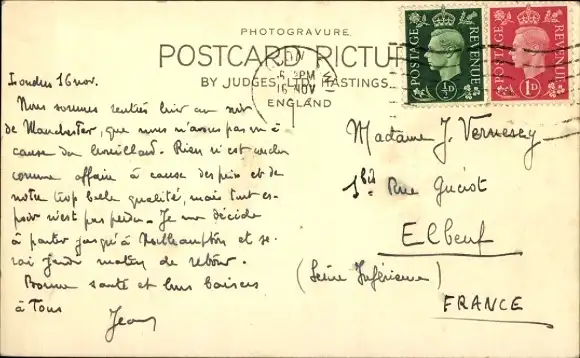 PHOTOGRAVURE
POSTCARD PICTU
BY JUDGES LTD HASTINGS
ENGLAND
5 PM
16 NOV
POSTAGE REVENUE
½D
POSTAGE REVENUE
1D
Londres 16 nov.
Nous sommes rentrés hier au soir
de Manchester, que nous n'avons pas vu à
cause du brouillard. Rien n'est conclu
comme affaire à cause des prix et de
notre trop belle qualité, mais tout es-
poir n'est pas perdu. Je me décide
à partir jusqu'à et se-
rai jeudi matin de retour.
Bonne santé et bons baisers
à Tous
Jean
Madame J.
1 bis Rue
Elbeuf
(Seine Inférieure)
FRANCE